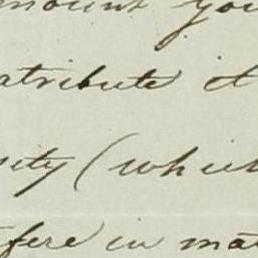 mount you
atribute it
sity (which
fere in mat